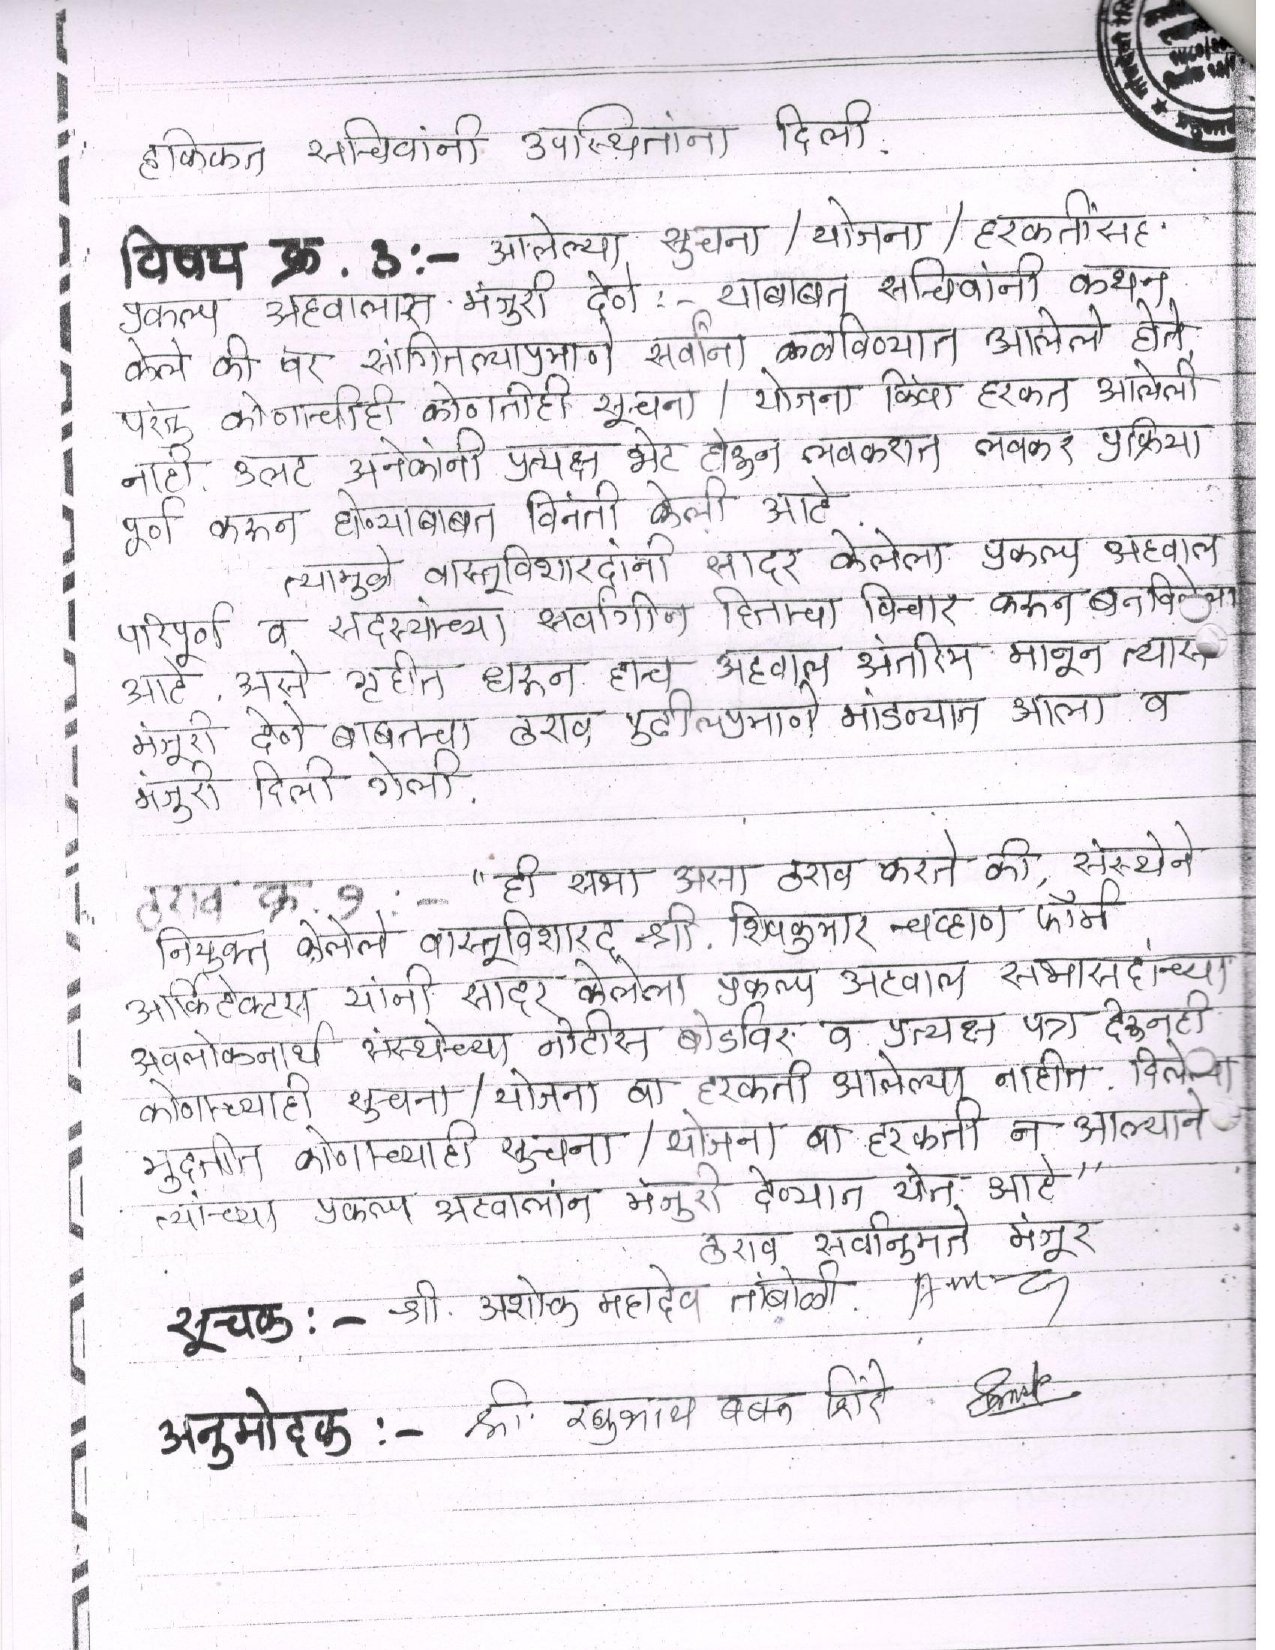 हकिकत सचिवांनी उपस्थितांना दिली.
विषय क्र. 3:- आलेल्या सुचना / योजना / हरकतींसह
प्रकल्प अहवालास मंजुरी देणे :- याबाबत सचिवांनी कथन
केले की वर सांगितल्याप्रमाणे सर्वांना कळविण्यात आलेले होते
परंतु कोणाचीही कोणतीही सूचना / योजना किंवा हरकत आलेली
नाही. उलट अनेकांनी प्रत्यक्ष भेट घेऊन लवकरात लवकर प्रक्रिया
पूर्ण करून घेण्याबाबत विनंती केली आहे.
त्यामुळे वास्तूविशारदांनी सादर केलेला प्रकल्प अहवाल
परिपूर्ण व सदस्यांच्या सर्वांगीन हिताचा विचार करून बनविलेला
आहे. असे गृहीत धरून हाच अहवाल अंतरिम मानून त्यास
मंजूरी देणे बाबतचा ठराव पुढीलप्रमाणे मांडण्यात आला व
मंजुरी दिली गेली.
ठराव क्र. 9 :- "ही सभा असा ठराव करते की, संस्थेने
नियुक्त केलेले वास्तूविशारद श्री. शिवकुमार चव्हाण फॉर्म
आर्किटेक्टस यांनी सादर केलेला प्रकल्प अहवाल सभासदांच्या
अवलोकनार्थ संस्थेच्या नोटीस बोर्डावर व प्रत्यक्ष पत्र देऊनही
कोणाच्याही सुचना / योजना वा हरकती आलेल्या नाहीत. दिलेल्या
मुदतीत कोणाच्याही सुचना / योजना वा हरकती न आल्याने
त्यांच्या प्रकल्प अहवालांन मंजुरी देण्यात येत आहे"
ठराव सर्वानुमते मंजूर
सूचक :- श्री. अशोक महादेव तांबोळी.
अनुमोदक :- श्री. रघुनाथ बबन शिंदे